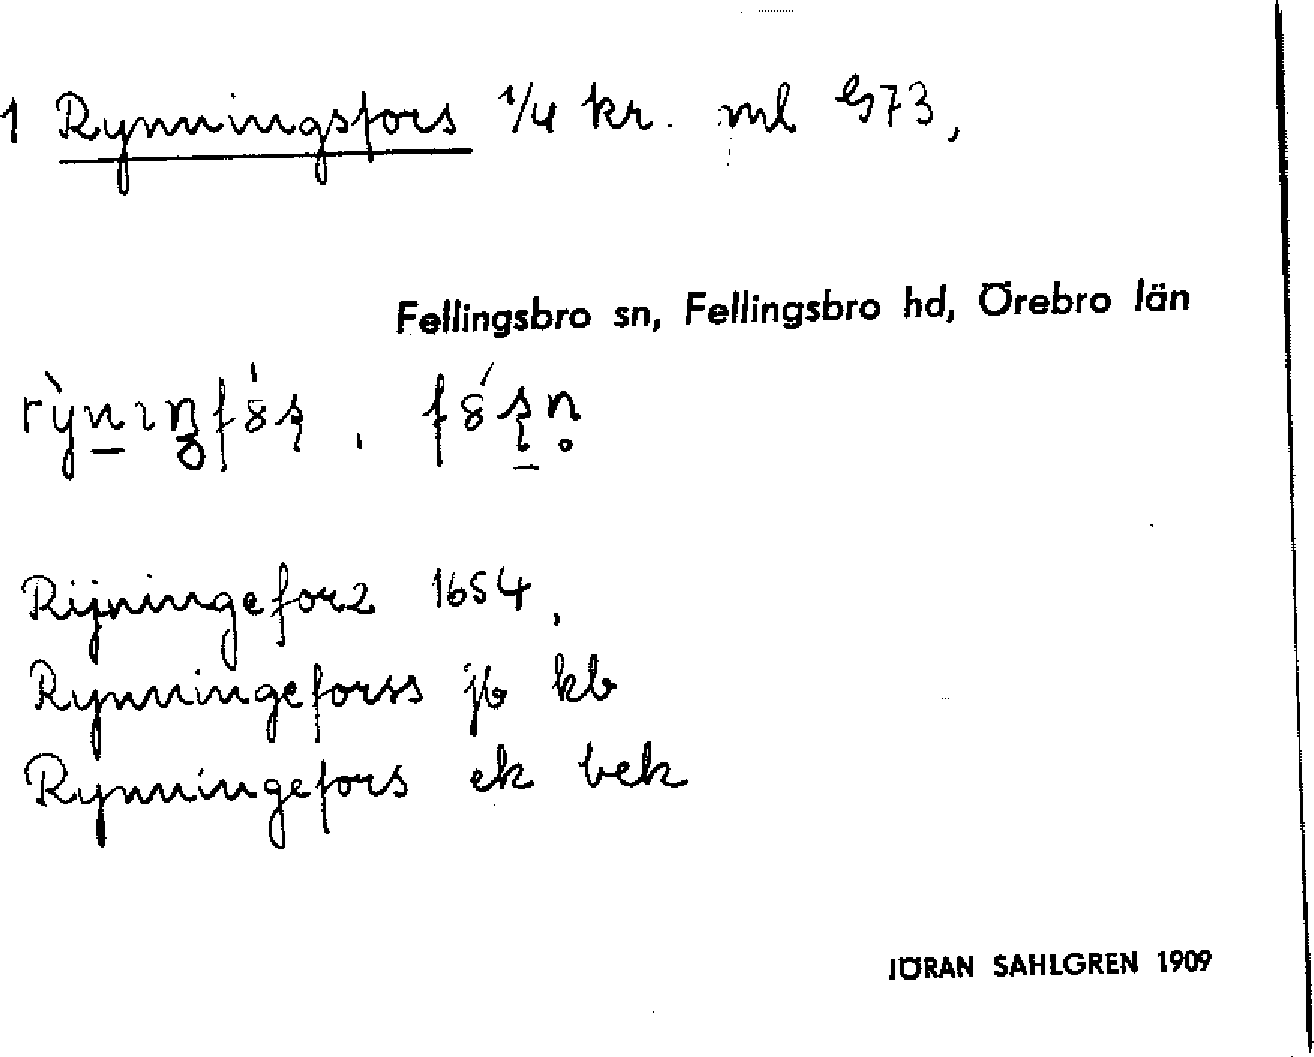 1 Rynningsfors 1/4 kr. ml G73,
Fellingsbro sn, Fellingsbro hd, Örebro län
Rijningeforz 1654,
Rynningeforss jb kb
Rynningefors ek bek
JÖRAN SAHLGREN 1909